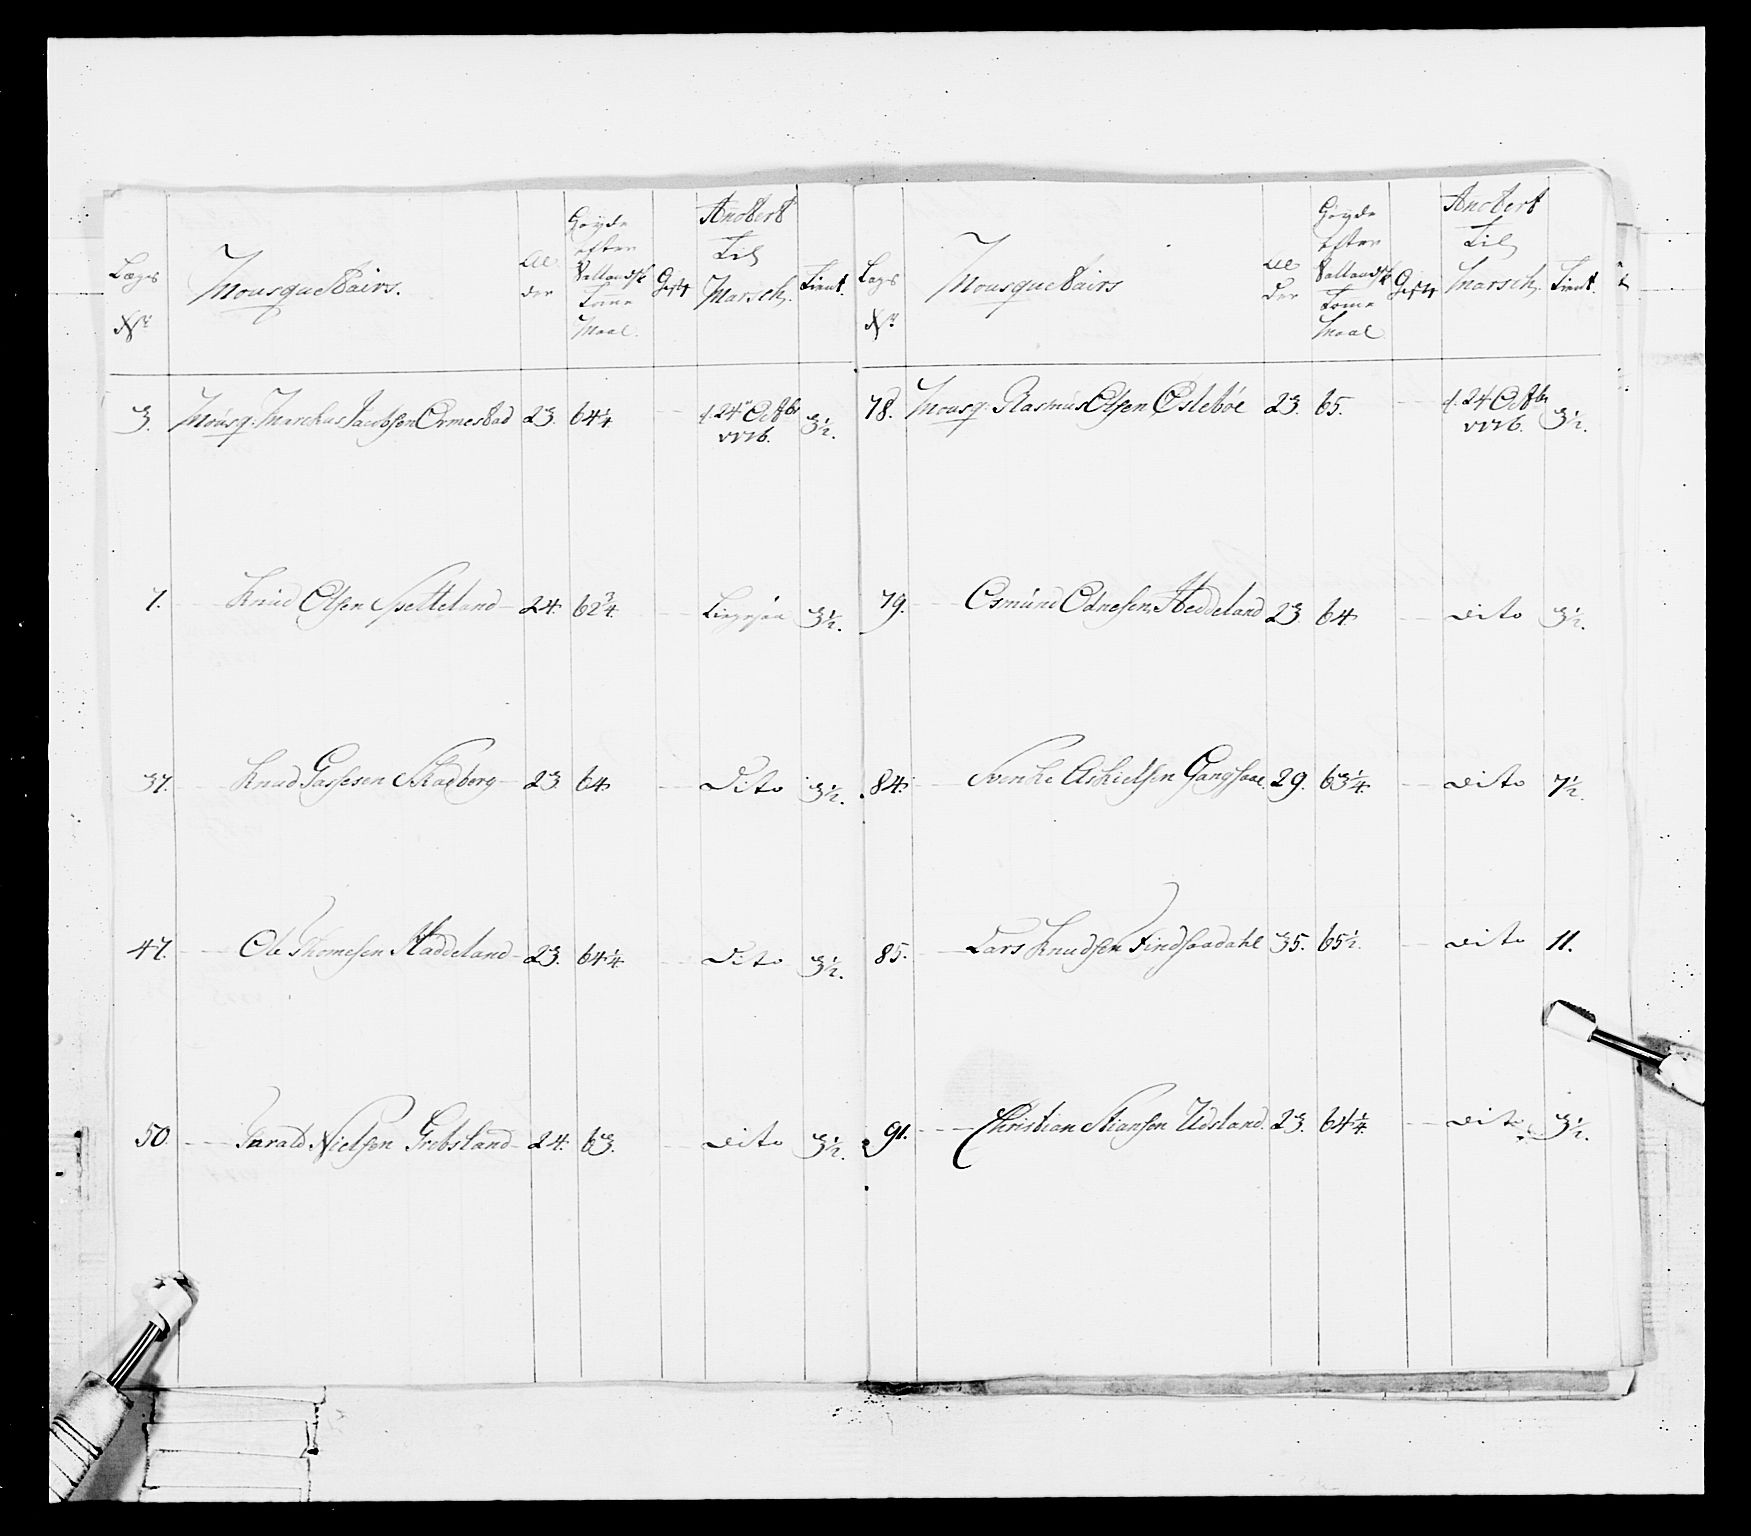 Læges
No
Mousquetairs.
Al
der
Høyde
efter
Sallandsk
Tome
Maal.
Gift
Anotert
Til
Marsch.
Tient.
3. Mousq. Marckus Jacobsen Ormestad 23. 64¼ d. 24 Octbr 3½.
1776.
7. Knud Olsen Spetteland 24. 62¾. Ligesaa 3½.
37. Knud Gassesen Skadberg 23. 64. Dito 3½.
47. Ole Thomesen Haddeland 23. 64¼. Dito 3½.
50. Tarald Nielsen Gribsland 24. 63. Dito 3½.
Lægs
No
Mousquetairs
Al
der
Høyde
efter
Sallandsk
Tome
Maal
Gift
Anotert
Til
Marsch.
Tient.
78. Mousq. Rasmus Olsen Øslebøe 23. 65. d. 24 Octbr 3½.
1776.
79. Osmund Ednesen Heddeland 23. 64. dito 3½.
84. Svenke Askielsen Gangsaae 29. 63¼. dito 7½.
85. Lars Knudsen Findsaadahl 35. 65½. dito 11.
91. Christian Stiansen Udsland. 23. 64¼. dito 3½.